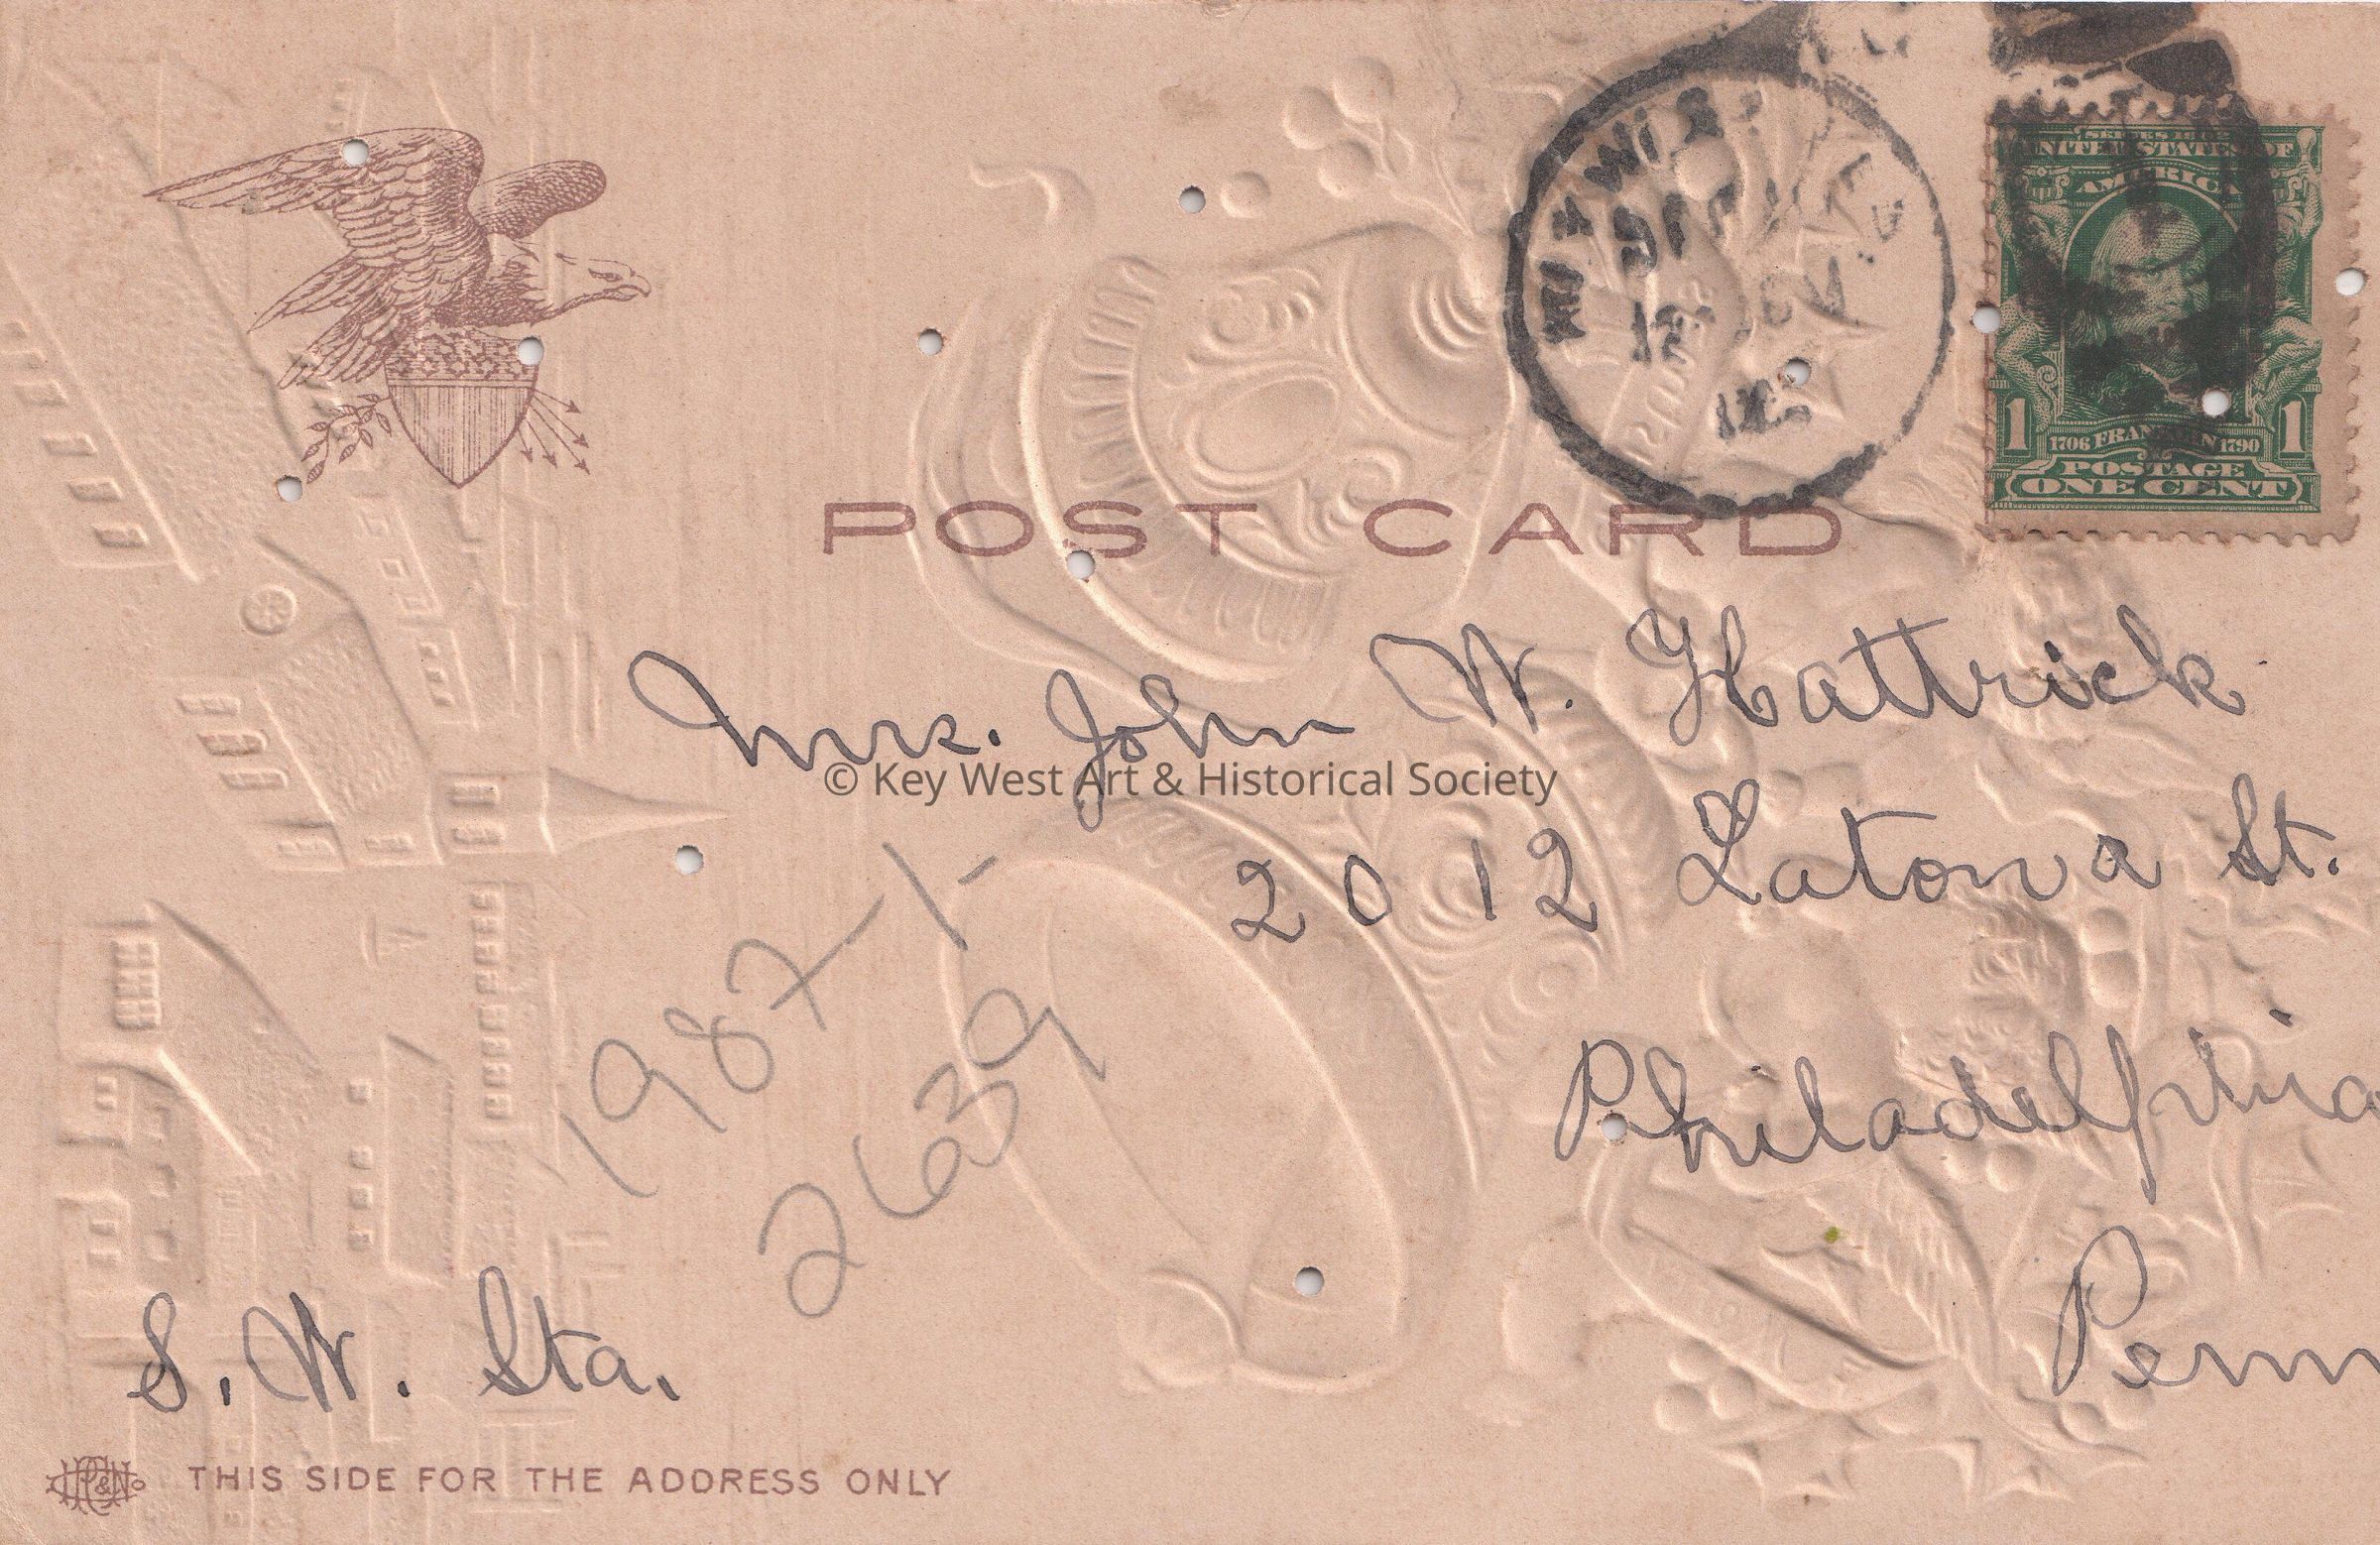 KEY WEST FLA.
SERIES 1902
UNITED STATES OF
AMERICA
1 1706 FRANKLIN 1790 1
POSTAGE
ONE CENT
POST CARD
Mrs. John W. Hattrick
© Key West Art & Historical Society
2012 Latona St.
Philadelphia
Penn
1987-1-
2639
S. W. Sta.
THIS SIDE FOR THE ADDRESS ONLY